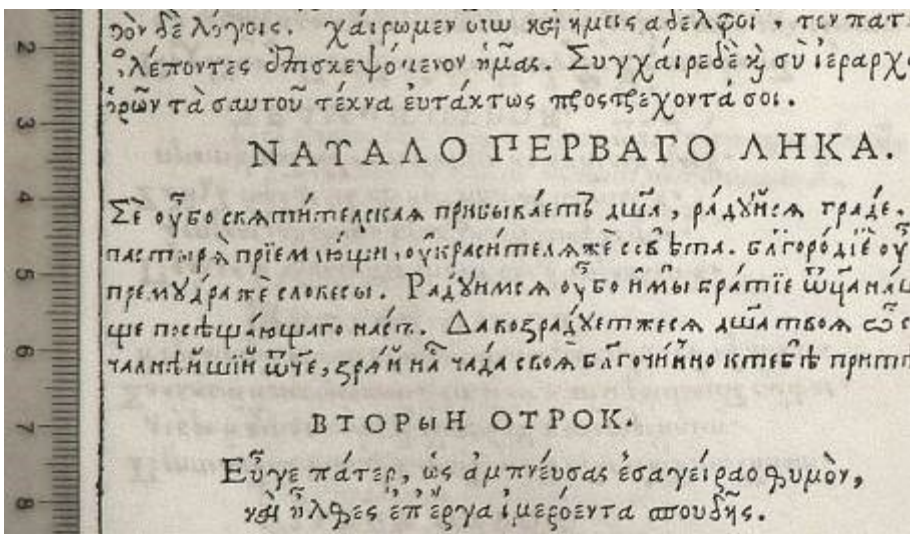 δὲ λόγοις. χαίρωμεν οὖν καὶ ἡμεῖς ἀδελφοὶ, τὸν
ἐπισκεψόμενον ἡμᾶς. Συγχαίρεδὲ καὶ σὺ
τὰ σαυτοῦ τέκνα ἐυτάκτως προστρέχοντά σοι.
ΝΑΤΑΛΟ ΠΕΡΒΑΓΟ ΛΗΚΑ.
Сѐ ᲂу҆̀бо свѧти́телскаѧ прибыва́етъ дш҃а, ра́дꙋйсѧ граде.
па́стырѧ̀ прїе́млющи, ᲂу҆краси́телѧжѐ свѣта. бл҃горо́дїе
премꙋ́дражѐ словесы. Ра́дꙋимсѧ ᲂу҆̀бо и҆мы бра́тїе ѿца
посѣща́ющаго на́съ. Давозра́дꙋетжесѧ дш҃а твоѧ̀
ѿч҃е, зра́й на̀ ча́да своѧ̀ бл҃гочи́нно ктебѣ̀
ВТОРЫН ОТРОК.
Εὖγε πάτερ, ὡς ἀμπνέυσας ἐσαγείραο θυμὸν,
καὶ ἦλθες ἐπ' ἔργα ἱμερόεντα σπουδῆς.